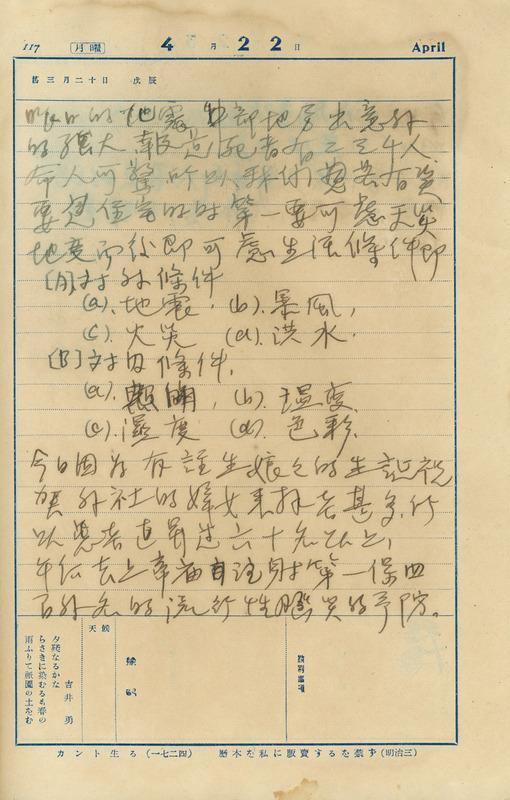 117 月曜 4月22日 April
舊三月二十日 戊辰
昨日的地震中部地方出意外
的强大報道死者有二三千人
令人可驚所以我們想若有資
要建住宅的时第一要可慮天災
地变而後即可慮生活條件即
[A]对外條件
(a).地震, (b).暴風,
(c).火災 (d).洪水,
[B]对内條件.
(a).照明, (b).温变.
(c).濕度 (d).色彩.
今日因为有註生娘々的生誕祝
賀外社的婦女来拜者甚多,所
以患者達過六十名以上,
午后去上幸庙自注射第一保四
百外名的流行性脳炎的予防。
天候
夕殘なるかな
らさきに染むるも春の
雨ふりて祇園の土をむ
吉井 勇
カント生る(一七二四) 曆本を私に販賣するを禁ず(明治三)